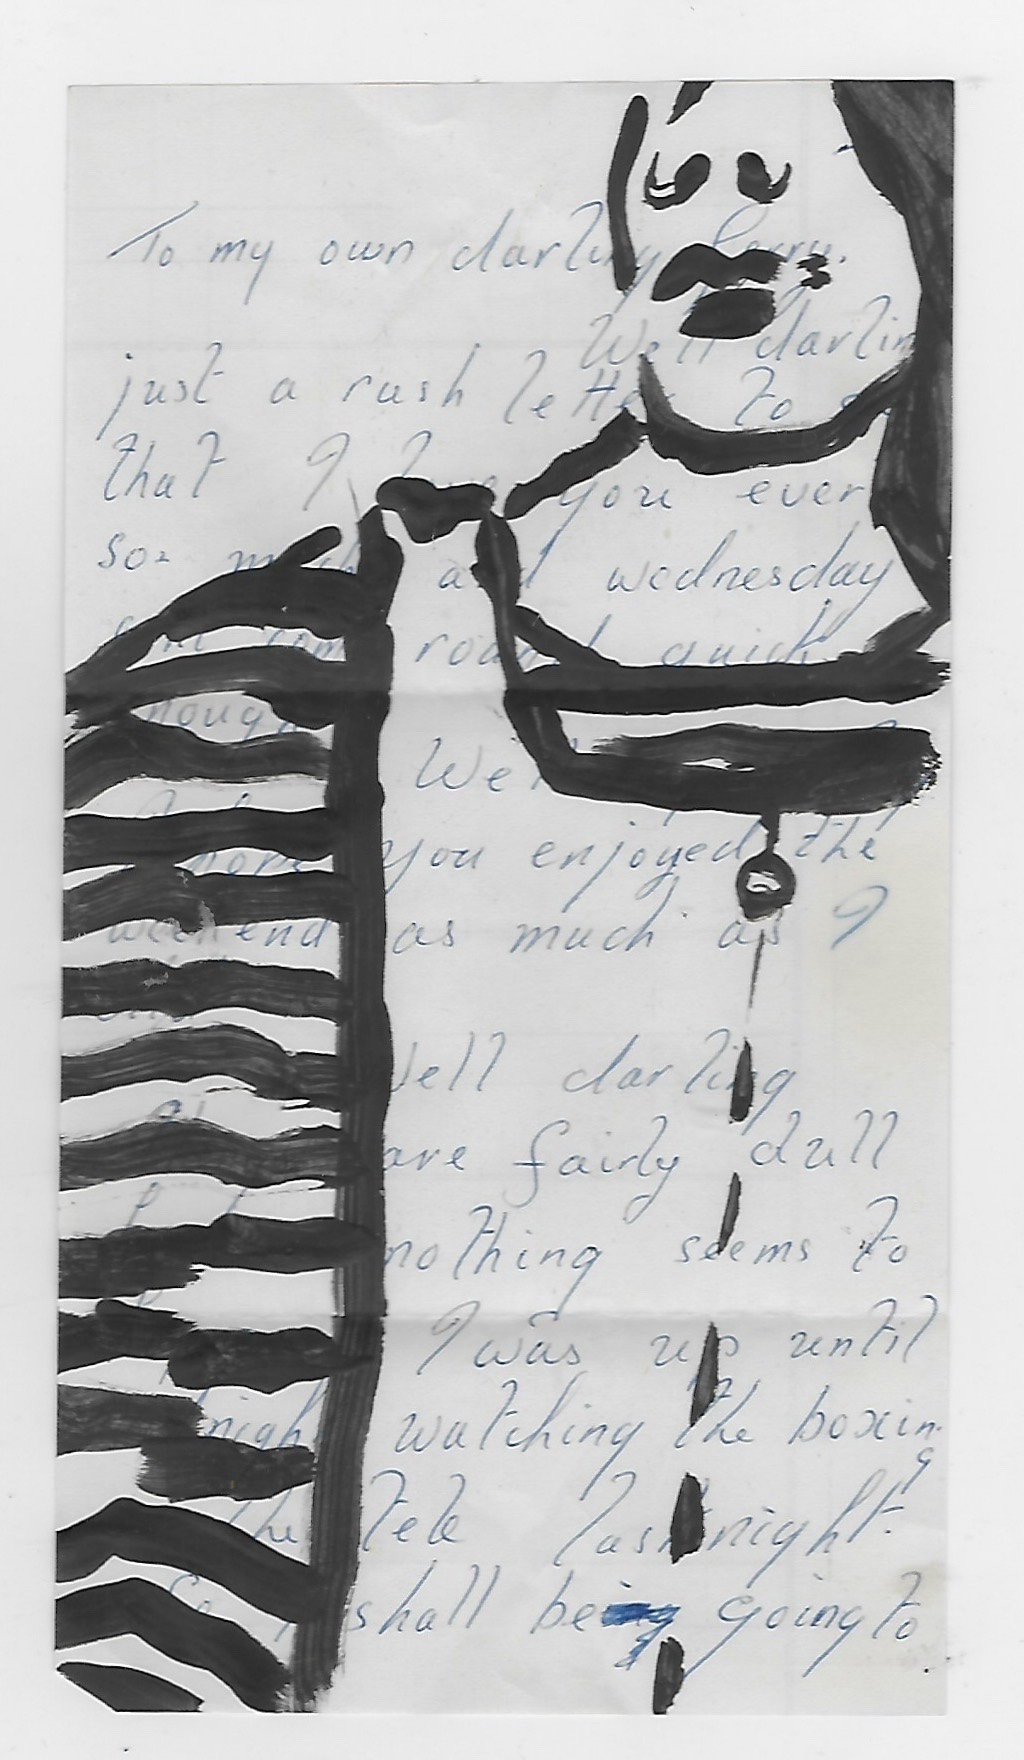 To my own darling
Well darlin
just a rush letter to
that I you ever
so much and wednesday
come round quick
nough
Well
hope you enjoyed the
weekend as much as I
Well darling
are fairly dull
nothing seems to
I was up until
night watching the boxing
the tele lastnight.
shall being going to